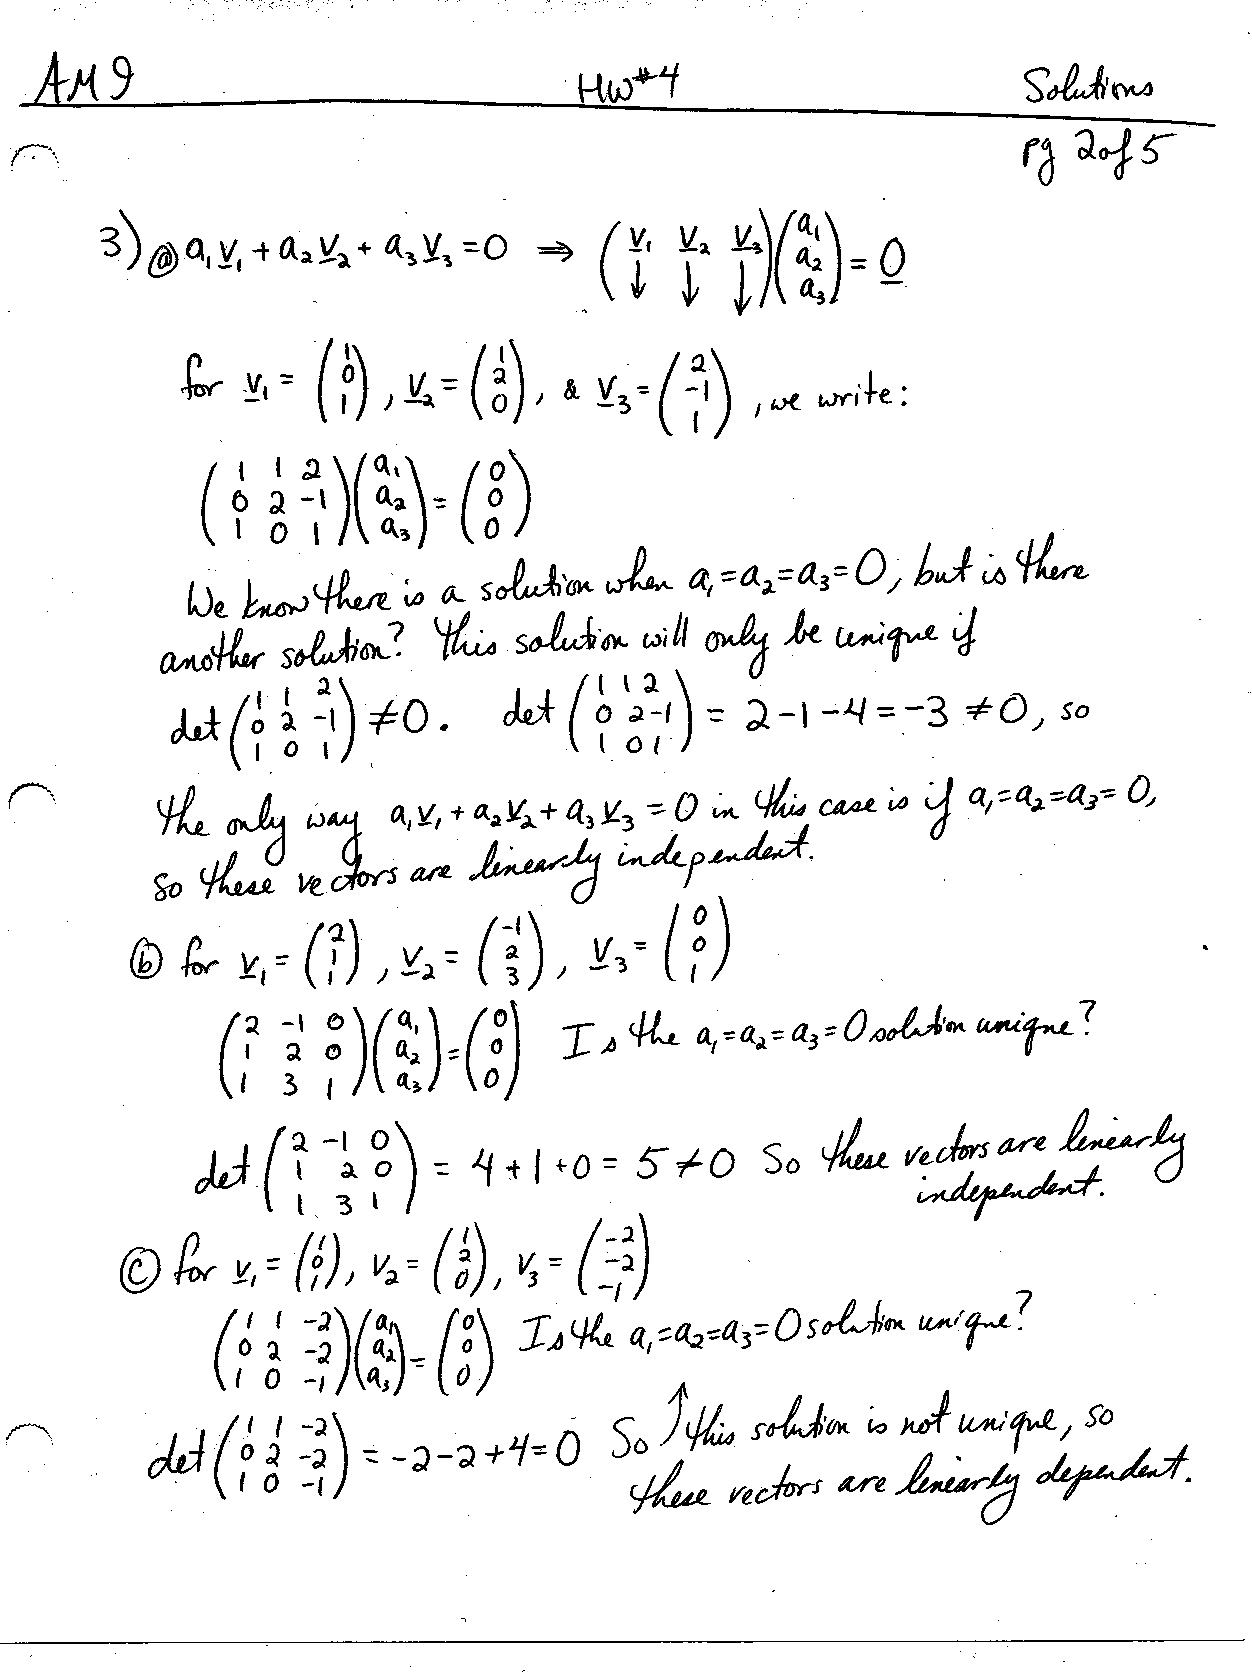 AM 9 HW #4 Solutions
pg 2 of 5
3) ⓐ a₁v̲₁ + a₂v̲₂ + a₃v̲₃ = 0 ⇒ (v̲₁ v̲₂ v̲₃ ↓ ↓ ↓)(a₁ a₂ a₃) = 0̲
for v̲₁ = (1 0 1), v̲₂ = (1 2 0), & v̲₃ = (2 -1 1), we write:
(1 1 2
0 2 -1
1 0 1)(a₁ a₂ a₃) = (0 0 0)
We know there is a solution when a₁=a₂=a₃=0, but is there
another solution? This solution will only be unique if
det(1 1 2
0 2 -1
1 0 1) ≠ 0. det(1 1 2
0 2 -1
1 0 1) = 2-1-4 = -3 ≠ 0, so
the only way a₁v̲₁ + a₂v̲₂ + a₃v̲₃ = 0 in this case is if a₁=a₂=a₃=0,
so these vectors are linearly independent.
ⓑ for v̲₁ = (2 1 1), v̲₂ = (-1 2 3), v̲₃ = (0 0 1)
(2 -1 0
1 2 0
1 3 1)(a₁ a₂ a₃) = (0 0 0) Is the a₁=a₂=a₃=0 solution unique?
det(2 -1 0
1 2 0
1 3 1) = 4+1+0 = 5 ≠ 0 So these vectors are linearly
independent.
ⓒ for v̲₁ = (1 0 1), v₂ = (1 2 0), v₃ = (-2 -2 -1)
(1 1 -2
0 2 -2
1 0 -1)(a₁ a₂ a₃) = (0 0 0) Is the a₁=a₂=a₃=0 solution unique?
det(1 1 -2
0 2 -2
1 0 -1) = -2-2+4=0 So ↑ this solution is not unique, so
these vectors are linearly dependent.